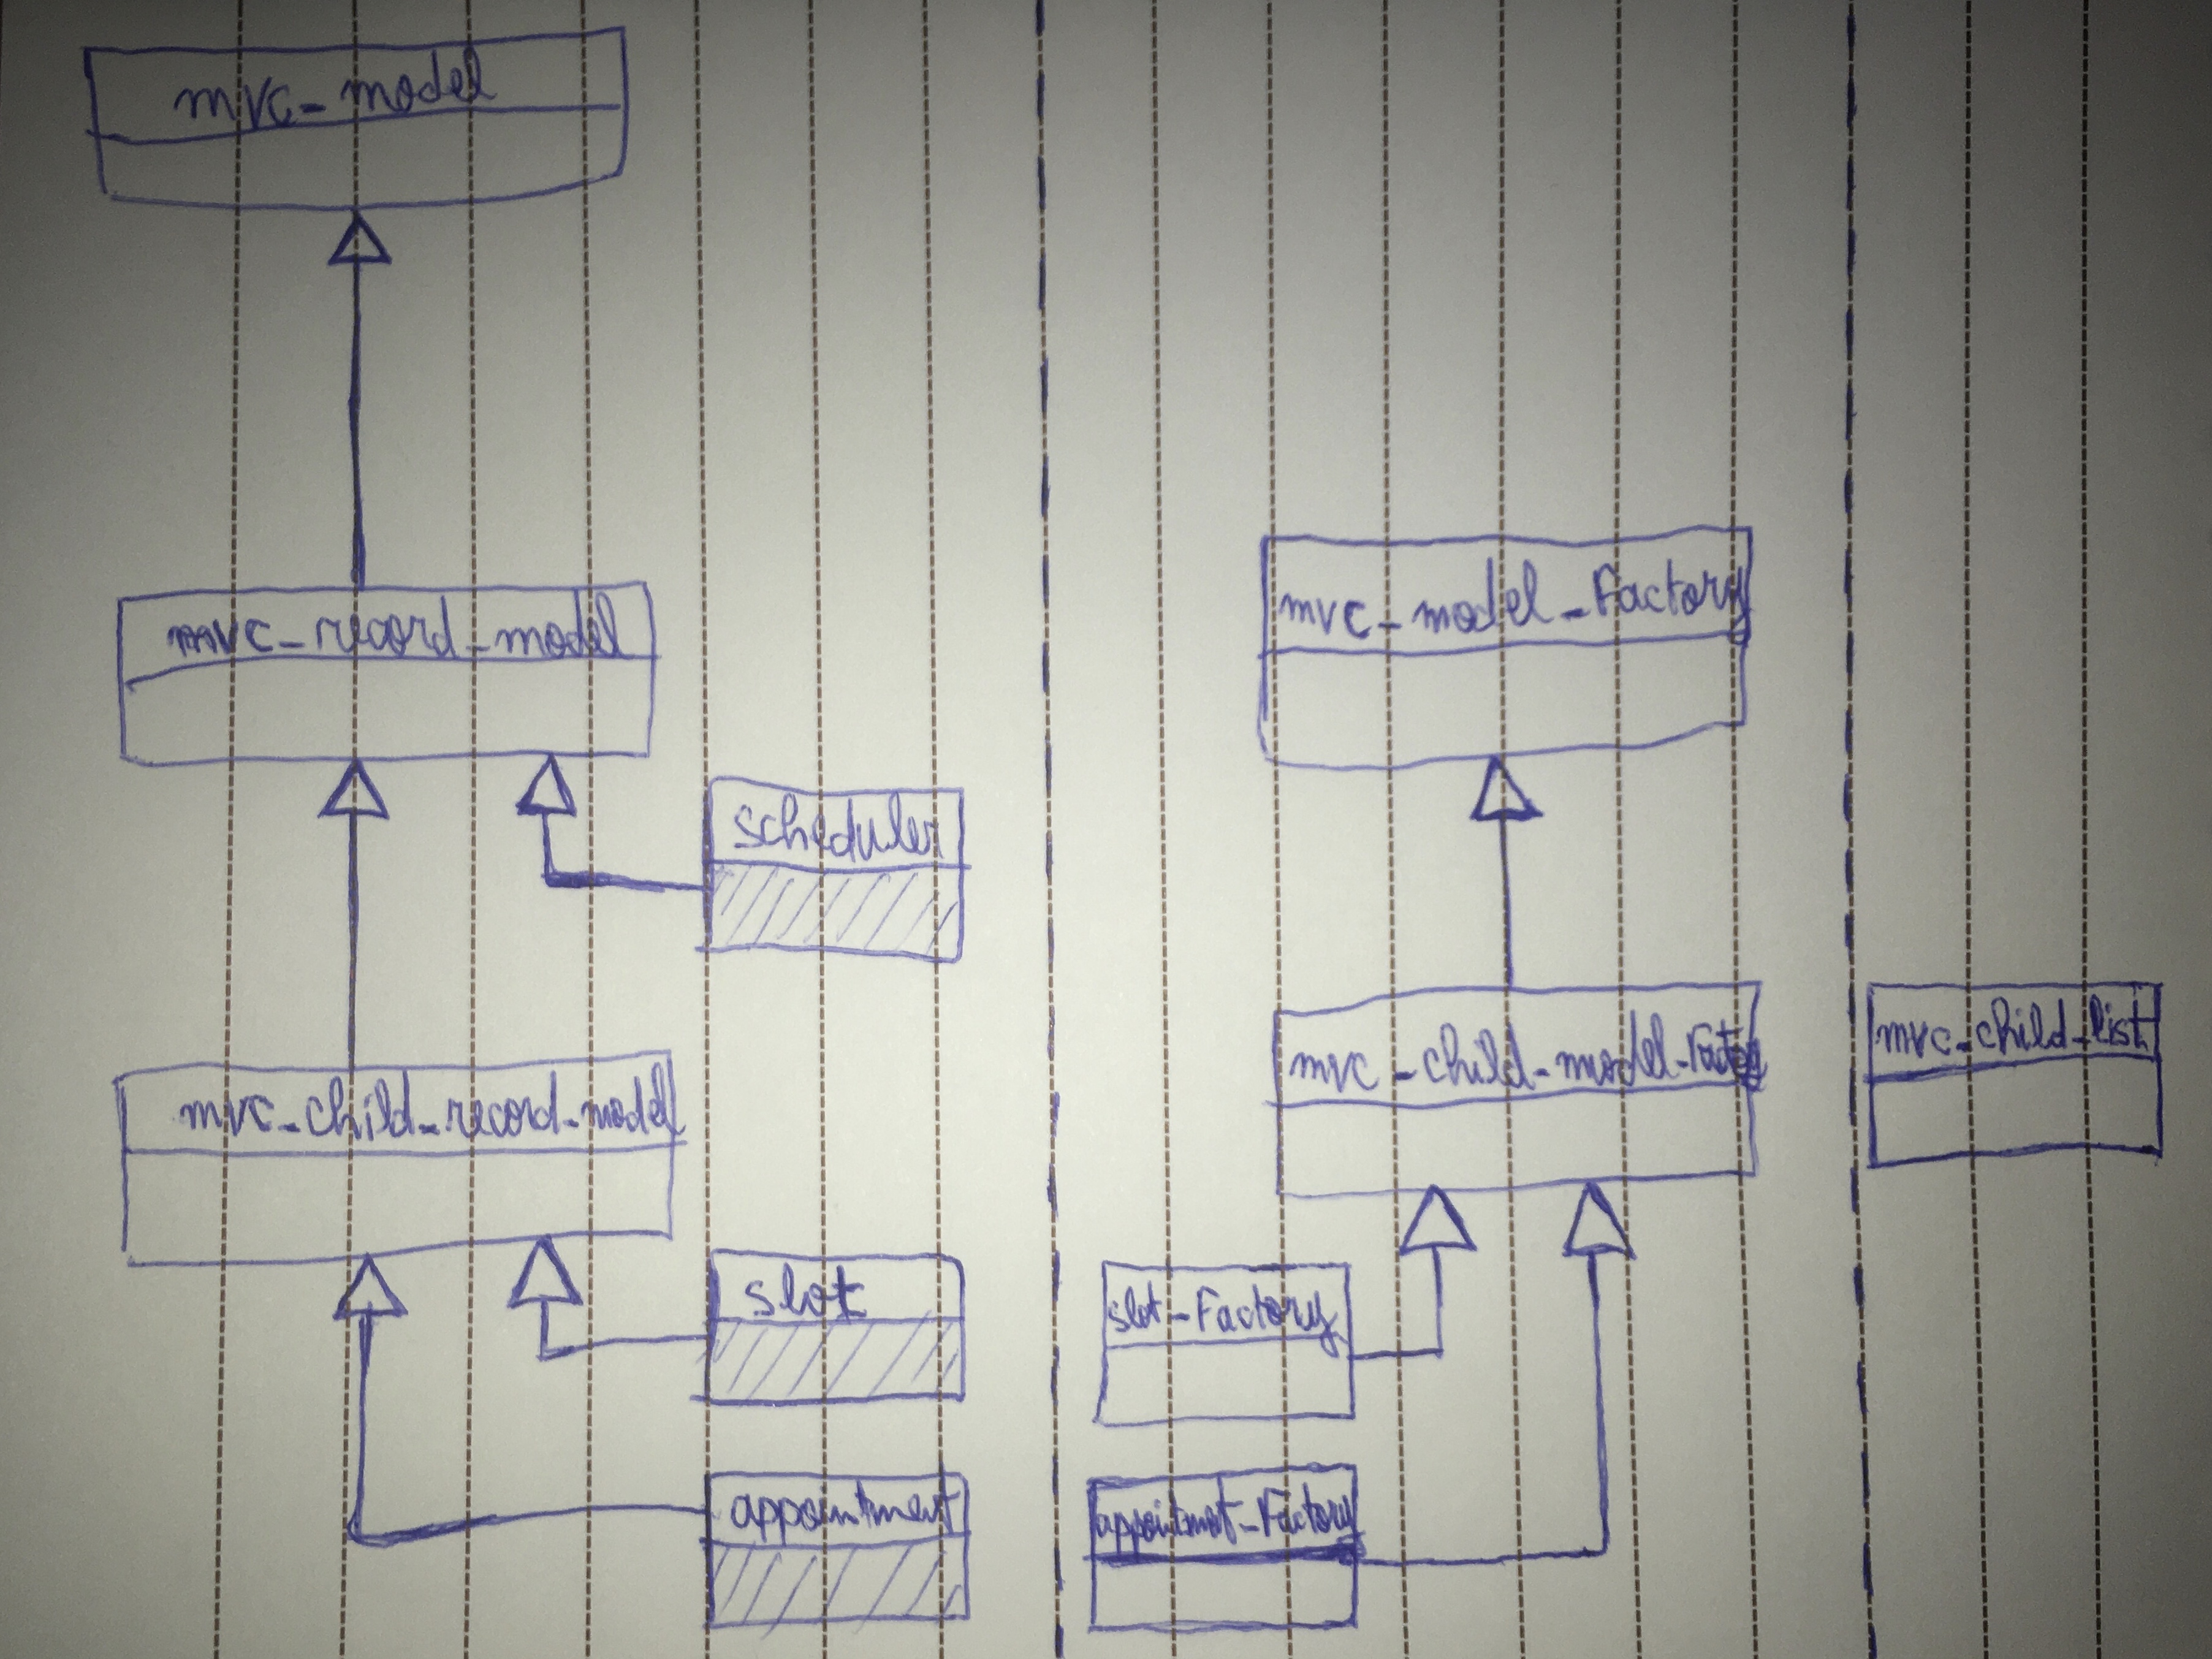 mvc_model
mvc_record_model
scheduler
mvc_child_record_model
slot
appointment
mvc_model_Factory
mvc_child_model_Factory
slot_Factory
appointment_Factory
mvc_child_list